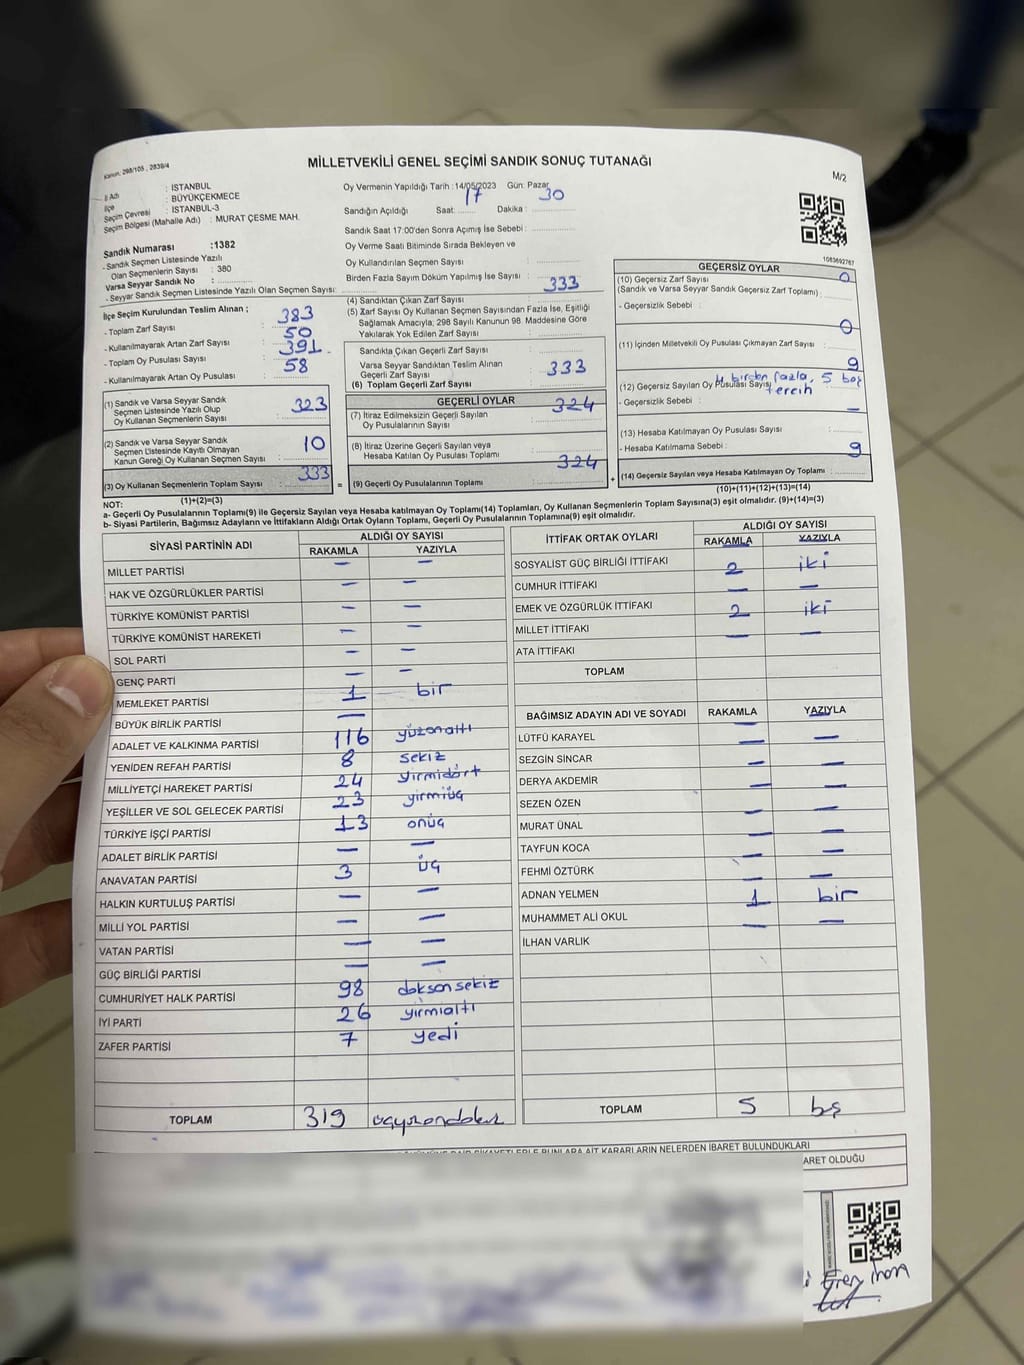 Kanun, 298/105 , 2839/4
MİLLETVEKİLİ GENEL SEÇİMİ SANDIK SONUÇ TUTANAĞI
M/2
İl Adı : İSTANBUL
İlçe : BÜYÜKÇEKMECE
Seçim Çevresi : İSTANBUL-3
Seçim Bölgesi (Mahalle Adı) : MURAT ÇESME MAH.
Sandık Numarası :1382
- Sandık Seçmen Listesinde Yazılı
Olan Seçmenlerin Sayısı : 380
Varsa Seyyar Sandık No :
- Seyyar Sandık Seçmen Listesinde Yazılı Olan Seçmen Sayısı:
Oy Vermenin Yapıldığı Tarih :14/05/2023 Gün: Pazar
Sandığın Açıldığı Saat: 17 Dakika : 30
Sandık Saat 17:00'den Sonra Açımış İse Sebebi :
Oy Verme Saati Bitiminde Sırada Bekleyen ve
Oy Kullandırılan Seçmen Sayısı :
Birden Fazla Sayım Döküm Yapılmış İse Sayısı :
1083692767
İlçe Seçim Kurulundan Teslim Alınan ;
- Toplam Zarf Sayısı : 383
- Kullanılmayarak Artan Zarf Sayısı : 50
- Toplam Oy Pusulası Sayısı : 391
- Kullanılmayarak Artan Oy Pusulası : 58
(1) Sandık ve Varsa Seyyar Sandık
Seçmen Listesinde Yazılı Olup
Oy Kullanan Seçmenlerin Sayısı : 323
(2) Sandık ve Varsa Seyyar Sandık
Seçmen Listesinde Kayıtlı Olmayan
Kanun Gereği Oy Kullanan Seçmen Sayısı : 10
(3) Oy Kullanan Seçmenlerin Toplam Sayısı : 333
(1)+(2)=(3)
(4) Sandıktan Çıkan Zarf Sayısı : 333
(5) Zarf Sayısı Oy Kullanan Seçmen Sayısından Fazla İse, Eşitliği
Sağlamak Amacıyla, 298 Sayılı Kanunun 98. Maddesine Göre
Yakılarak Yok Edilen Zarf Sayısı :
Sandıkta Çıkan Geçerli Zarf Sayısı :
Varsa Seyyar Sandıktan Teslim Alınan
Geçerli Zarf Sayısı :
(6) Toplam Geçerli Zarf Sayısı : 333
GEÇERLİ OYLAR
(7) İtiraz Edilmeksizin Geçerli Sayılan
Oy Pusulalarının Sayısı : 324
(8) İtiraz Üzerine Geçerli Sayılan veya
Hesaba Katılan Oy Pusulası Toplamı :
= (9) Geçerli Oy Pusulalarının Toplamı : 324
GEÇERSİZ OYLAR
(10) Geçersiz Zarf Sayısı : 0
(Sandık ve Varsa Seyyar Sandık Geçersiz Zarf Toplamı) :
- Geçersizlik Sebebi :
(11) İçinden Milletvekili Oy Pusulası Çıkmayan Zarf Sayısı : 0
(12) Geçersiz Sayılan Oy Pusulası Sayısı : 9
- Geçersizlik Sebebi : 4 birden fazla, 5 boş
tercih
(13) Hesaba Katılmayan Oy Pusulası Sayısı : —
- Hesaba Katılmama Sebebi :
+ (14) Geçersiz Sayılan veya Hesaba Katılmayan Oy Toplamı : 9
(10)+(11)+(12)+(13)=(14)
NOT:
a- Geçerli Oy Pusulalarının Toplamı(9) ile Geçersiz Sayılan veya Hesaba katılmayan Oy Toplamı(14) Toplamları, Oy Kullanan Seçmenlerin Toplam Sayısına(3) eşit olmalıdır. (9)+(14)=(3)
b- Siyasi Partilerin, Bağımsız Adayların ve İttifakların Aldığı Ortak Oyların Toplamı, Geçerli Oy Pusulalarının Toplamına(9) eşit olmalıdır.
SİYASİ PARTİNİN ADI ALDIĞI OY SAYISI
RAKAMLA YAZIYLA
MİLLET PARTİSİ — —
HAK VE ÖZGÜRLÜKLER PARTİSİ — —
TÜRKİYE KOMÜNİST PARTİSİ — —
TÜRKİYE KOMÜNİST HAREKETİ — —
SOL PARTİ — —
GENÇ PARTİ — —
MEMLEKET PARTİSİ 1 bir
BÜYÜK BİRLİK PARTİSİ —
ADALET VE KALKINMA PARTİSİ 116 yüzonaltı
YENİDEN REFAH PARTİSİ 8 sekiz
MİLLİYETÇİ HAREKET PARTİSİ 24 yirmidört
YEŞİLLER VE SOL GELECEK PARTİSİ 23 yirmiüç
TÜRKİYE İŞÇİ PARTİSİ 13 onüç
ADALET BİRLİK PARTİSİ — —
ANAVATAN PARTİSİ 3 üç
HALKIN KURTULUŞ PARTİSİ — —
MİLLİ YOL PARTİSİ — —
VATAN PARTİSİ — —
GÜÇ BİRLİĞİ PARTİSİ — —
CUMHURİYET HALK PARTİSİ 98 doksansekiz
İYİ PARTİ 26 yirmialtı
ZAFER PARTİSİ 7 yedi
TOPLAM 319 üçyüzondokuz
İTTİFAK ORTAK OYLARI ALDIĞI OY SAYISI
RAKAMLA YAZIYLA
SOSYALİST GÜÇ BİRLİĞİ İTTİFAKI 2 iki
CUMHUR İTTİFAKI — —
EMEK VE ÖZGÜRLÜK İTTİFAKI 2 iki
MİLLET İTTİFAKI — —
ATA İTTİFAKI
TOPLAM
BAĞIMSIZ ADAYIN ADI VE SOYADI RAKAMLA YAZIYLA
LÜTFÜ KARAYEL — —
SEZGİN SİNCAR — —
DERYA AKDEMİR — —
SEZEN ÖZEN — —
MURAT ÜNAL — —
TAYFUN KOCA — —
FEHMİ ÖZTÜRK — —
ADNAN YELMEN 1 bir
MUHAMMET ALİ OKUL — —
İLHAN VARLIK
TOPLAM 5 bş
KARARLARIN NELERDEN İBARET BULUNDUKLARI
ARET OLDUĞU